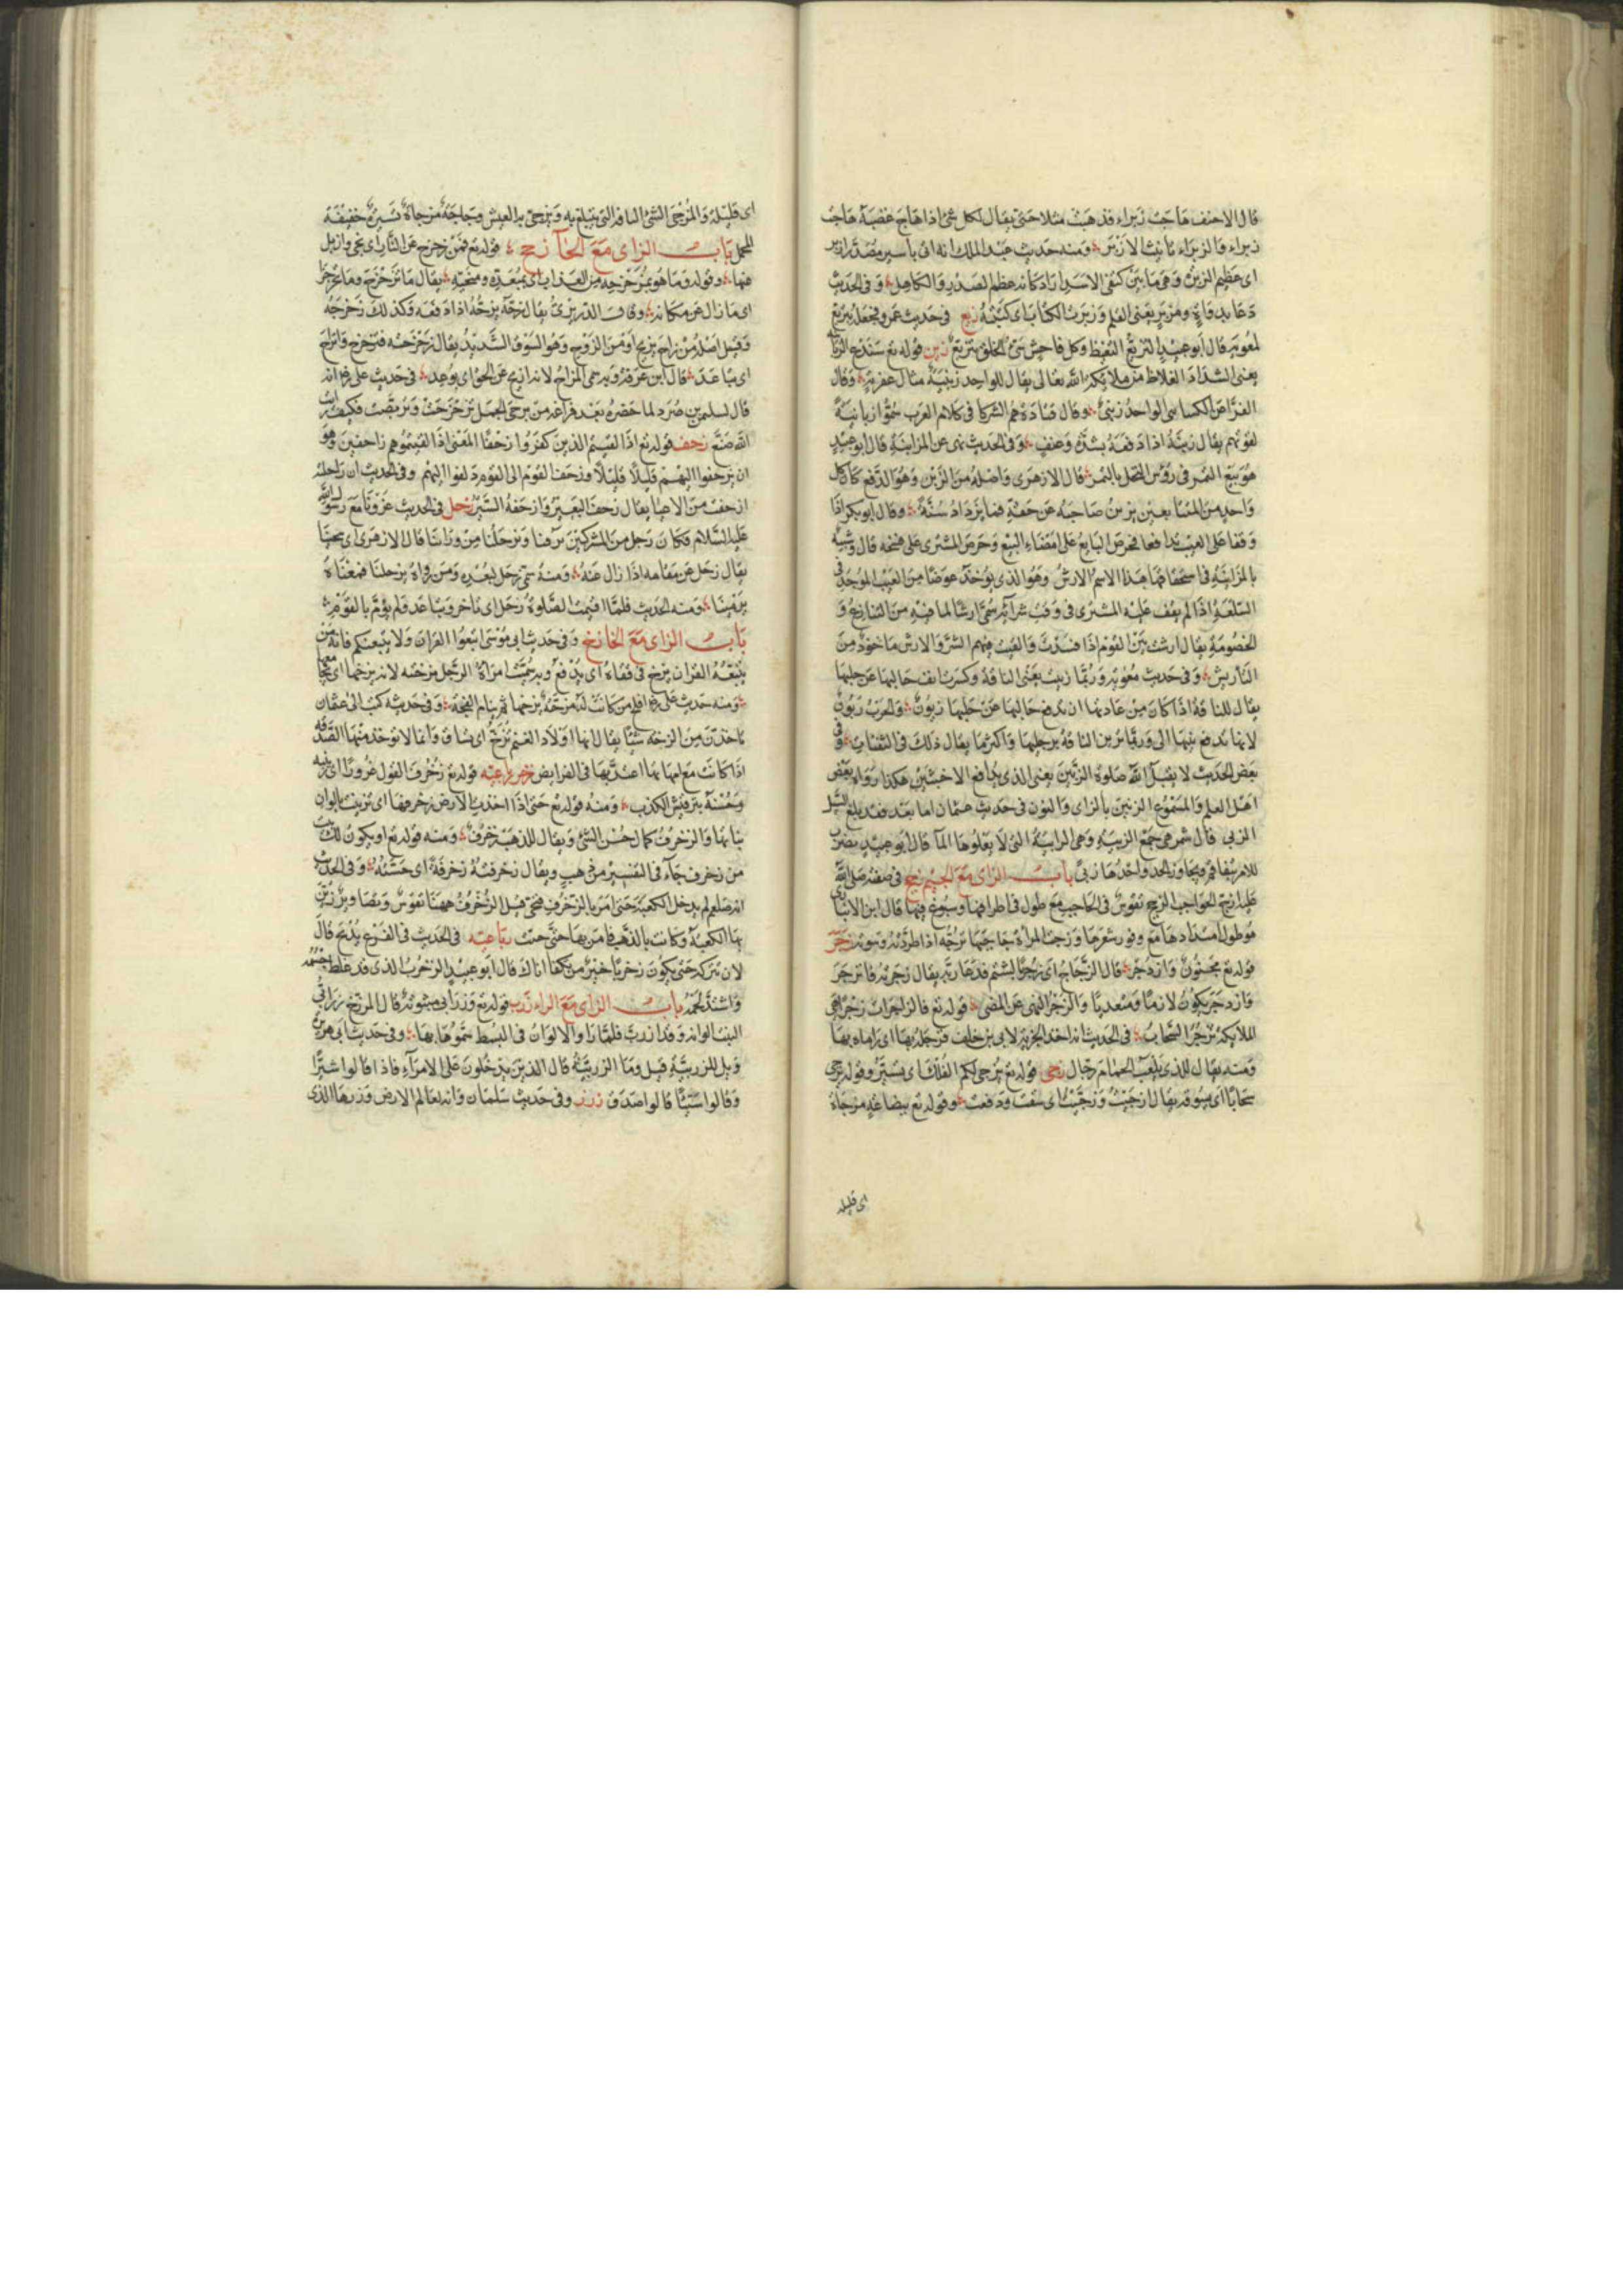 قال الاحنف هاجت زبراء فذهبت مثلا حتى يقال لكل شئ اذا هاج غضبه هاجت
زبراء والزبراء تانيث الازبر ومنه حديث عبد الملك انه اتى باسير مصدر ازبر
اى عظيم الزبرة وهى ما بين كتفى الاسد اراد كانه عظم الصدر والكاهل وفى الحديث
دعا بدواة ومزبر يعنى القلم وزبرت الكتاب اى كتبته زبع فى حديث عمرو فجعل يتزبع
لمعوية قال ابو عبيد التزبع التغيظ وكل فاحش سئ الخلق متزبع زبن قوله تع سندع الزبانية
يعنى الشداد الغلاظ من ملائكة الله تعالى يقال للواحد زبنية مثال عفرية وقال
الفراء عن الكسائى الواحد زبنى وقال قتادة هم الشرط فى كلام العرب سموا زبانية
لقوتهم يقال زبنه اذا دفعه بشدة وعنف وفى الحديث نهى عن المزابنة قال ابو عبيد
هو بيع التمر فى رؤس النخل بالتمر قال الازهرى واصله من الزبن وهو الدفع كان كل
واحد من المتبايعين يزبن صاحبه عن حقه بما يزداد منه وقال ابو بكر اذا
وقفا على العيب تدافعا فحرص البايع على امضاء البيع وحرص المشترى على فسخه قال وشبيه
بالمزابنة فى استحقاقها هذا الاسم الارش وهو الذى يؤخذ عوضا من العيب الموجد فى
السلعة اذا لم يقف عليه المشترى فى وقت شرائه سمى ارشا لما فيه من التنازع و
الخصومة يقال ارشت بين القوم اذا افسدت والقيت بينهم الشر والارش ماخوذ من
التأريش وفى حديث معوية وربما زبنت يعنى الناقة وكسرت انف حالبها عن حلبها
يقال للناقة اذا كان من عادتها ان تدفع حالبها عن حلبها زبون والحرب زبون
لانها تدفع بنيها الى ورتما تزبن الناقة برجلها واكثر ما يقال ذلك فى الثفنات وفى
بعض الحديث لا يقبل الله صلوة الزبين يعنى الذى يدافع الاخبثين هكذا رواه بعض
اهل العلم والمسموع الزنين بالزاى والنون فى حديث عثمان اما بعد فقد بلغ السيل
الزبى قال شمر هى جمع الزبية وهى الرابية التى لا يعلوها الماء قال ابو عبيد يضرب
للامر يتفاقم ويتجاوز الحد واحدها زبى باب الزاى مع الجيم زجج فى صفته صلى الله
عليه ازج الحواجب الزجج تقوس فى الحاجب مع طول فى اطرافها وسبوغ فيها قال ابن الانبارى
هو طول امتدادها مع وفور شعرها وزجت المراة حاجبها تزجه اذا طردته وسوته زجر
قوله تع مجنون وازدجر قال الزجاج اى زجر بالشتم فدعا ربه يقال زجرته فانزجر
وازدجر يكون لازما ومتعديا والزجر النهى عن المضى قوله تع فالزاجرات زجرا هى
الملائكة تزجر السحاب فى الحديث انه اخذ الحربة لابى بن خلف فزجله بها اى رماه بها
ومنه يقال للذى يلعب الحمام زجال زجى قوله تع يزجى لكم الفلك اى يسير وقوله يزجى
سحابا اى يسوقه يقال ازجيت وزجيت اى سقت ودفعت وقوله تع ببضاعة مزجاة
اى قليله
اى قليلة والمزجى الشئ التافه الذى يتبلغ به ويزجى به العيش وبحاجة مزجاة يسيرة خفيفة
المحمل باب الزاى مع الحآ زحح قوله تع فمن زحزح عن النار اى نحى وازيل
عنها وقوله وما هو بمزحزحه من العذاب اى بمبعده ومنحيه يقال ما تزحزح وما تحزحز
اى ما زال عن مكانه وقال ابن دريد يقال زحه يزحه اذا دفعه وكذلك زحزحه
وقيل اصله من زاح يزيح او من الزوح وهو السوق الشديد يقال زحزحته فتزحزح وانزاح
اى تباعد قال ابن عرفة ويدحى المزاح لانه ازيح عن الحق اى بوعد فى حديث على رضى انه
قال لسليمن بن صرد لما حضره بعد فراغه من مرحى الجمل تزحزحت وتربصت فكيف رايت
الله صنع زحف قوله تع اذا لقيتم الذين كفروا زحفا المعنى اذا لقيتموهم زاحفين وهو
ان يزحفوا اليهم قليلا قليلا وزحف القوم الى القوم دلفوا اليهم وفى الحديث ان راحلته
ازحفت من الاعيا يقال زحف البعير وازحفه السير زحل فى الحديث غزونا مع رسول الله
عليه السلام فكان رجل من المشركين يرقنا ويزحلنا من ورائنا قال الازهرى اى ينحينا
يقال زحل عن مقامه اذا زال عنه ومنه سمى زحل لبعده ومن رواه يزجلنا فمعناه
يرمينا ومنه الحديث فلما اقيمت الصلوة زحل اى تاخر وتباعد فلم يؤم بالقوم
باب الزاى مع الخا زخخ وفى حديث ابى موسى اتبعوا القران ولا يتبعنكم فانه من
يتبعه القران يزخ فى قفاه اى يدفع وبه سميت امراة الرجل مزخته لانه يزخها اى يجامعها
ومنه حديث على رضى افلح من كانت له مزخه يزخها ثم ينام الفخه وفى حديثه كتب الى عثمان
تاخذن من الزخه شيئا يقال انها اولاد الغنم تزخ اى تساق وانما لا تؤخذ منها الصدقه
اذا كانت مع امهاتها اعتد بها فى الفرايض زخرف رباعيه قوله تع زخرف القول غرورا اى زينه
وحسنه بترقيش الكذب ومنه قوله تع حتى اذا اخذت الارض زخرفها اى تزينت بالوان
نباتها والزخرف كمال حسن الشئ ويقال للذهب زخرف ومنه قوله تع او يكون لك بيت
من زخرف جآء فى التفسير من ذهب ويقال زخرفته زخرفة اى حسنته وفى الحديث
انه صلعم لم يدخل الكعبة حتى امر بالزخرف فنحى قيل الزخرف ههنا نقوش وتصاوير زين
بها الكعبة وكانت بالذهب فامر بها حتى حتت رباعيه فى الحديث فى الفرع يذبح قال
لان تتركه حتى يكون زخربا خير من تكفأ اناك قال ابو عبيد الزخرب الذى قد غلظ جسمه
واشتد لحمه باب الزاى مع الراء زرب قوله تع وزرابى مبثوثة قال المؤرخ زرابى
النبت الوانه وقد ازربت فلما راوا الالوان فى البسط سموها بها وفى حديث ابى هريرة
ويل للزربية قيل وما الزربية قال الذين يدخلون على الامرآء فاذا قالوا شرا
وقالوا شيئا قالوا صدق زرر وفى حديث سلمان وانه لعالم الارض وزرها الذى